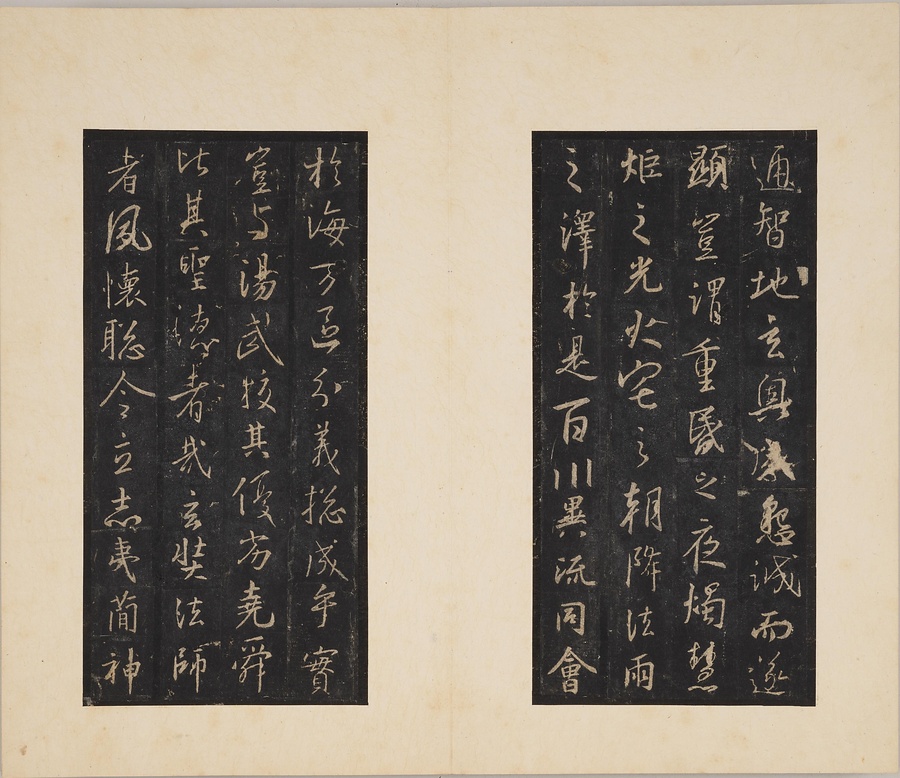 通智地玄奧感懇誠而遂
顯豈謂重昏之夜燭慧
炬之光火宅之朝降法雨
之澤於是百川異流同會
於海萬區分義總成乎實
豈與湯武校其優劣堯舜
比其聖德者哉玄奘法師
者夙懷聰令立志夷簡神